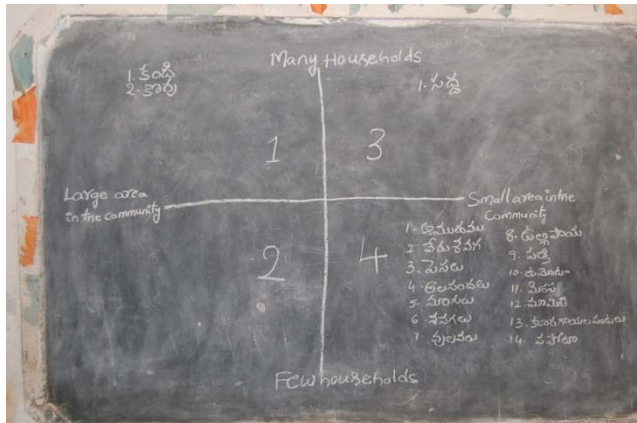 Many Households
1. కంది
2. కొర్ర
1. సద్ద
1
3
Large area
in the community
Small area in the
Community
2
4
1. ఆముదము
2 వేరుశనగ
3. పెసలు
4. అలసందలు
5.
6 శనగలు
7. వులవలు
8. ఉల్లిపాయ
9. పత్తి
10. టమోటా
11. మిరప
12
13. కూరగాయలు
14. సపోటా
Few households